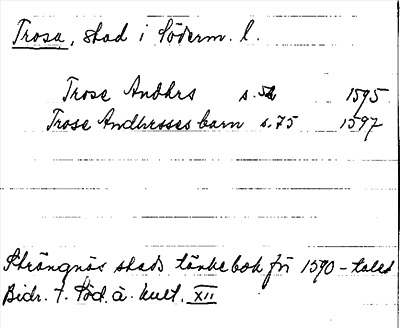 Trosa, stad i Söderm. l.
Trose Andhrs s. 1595
Trose Andhrsses barn s. 75 1597
Strängnäs stads tänkebok för 1590-talet
Bidr. t. Söd. ä. kult. XII